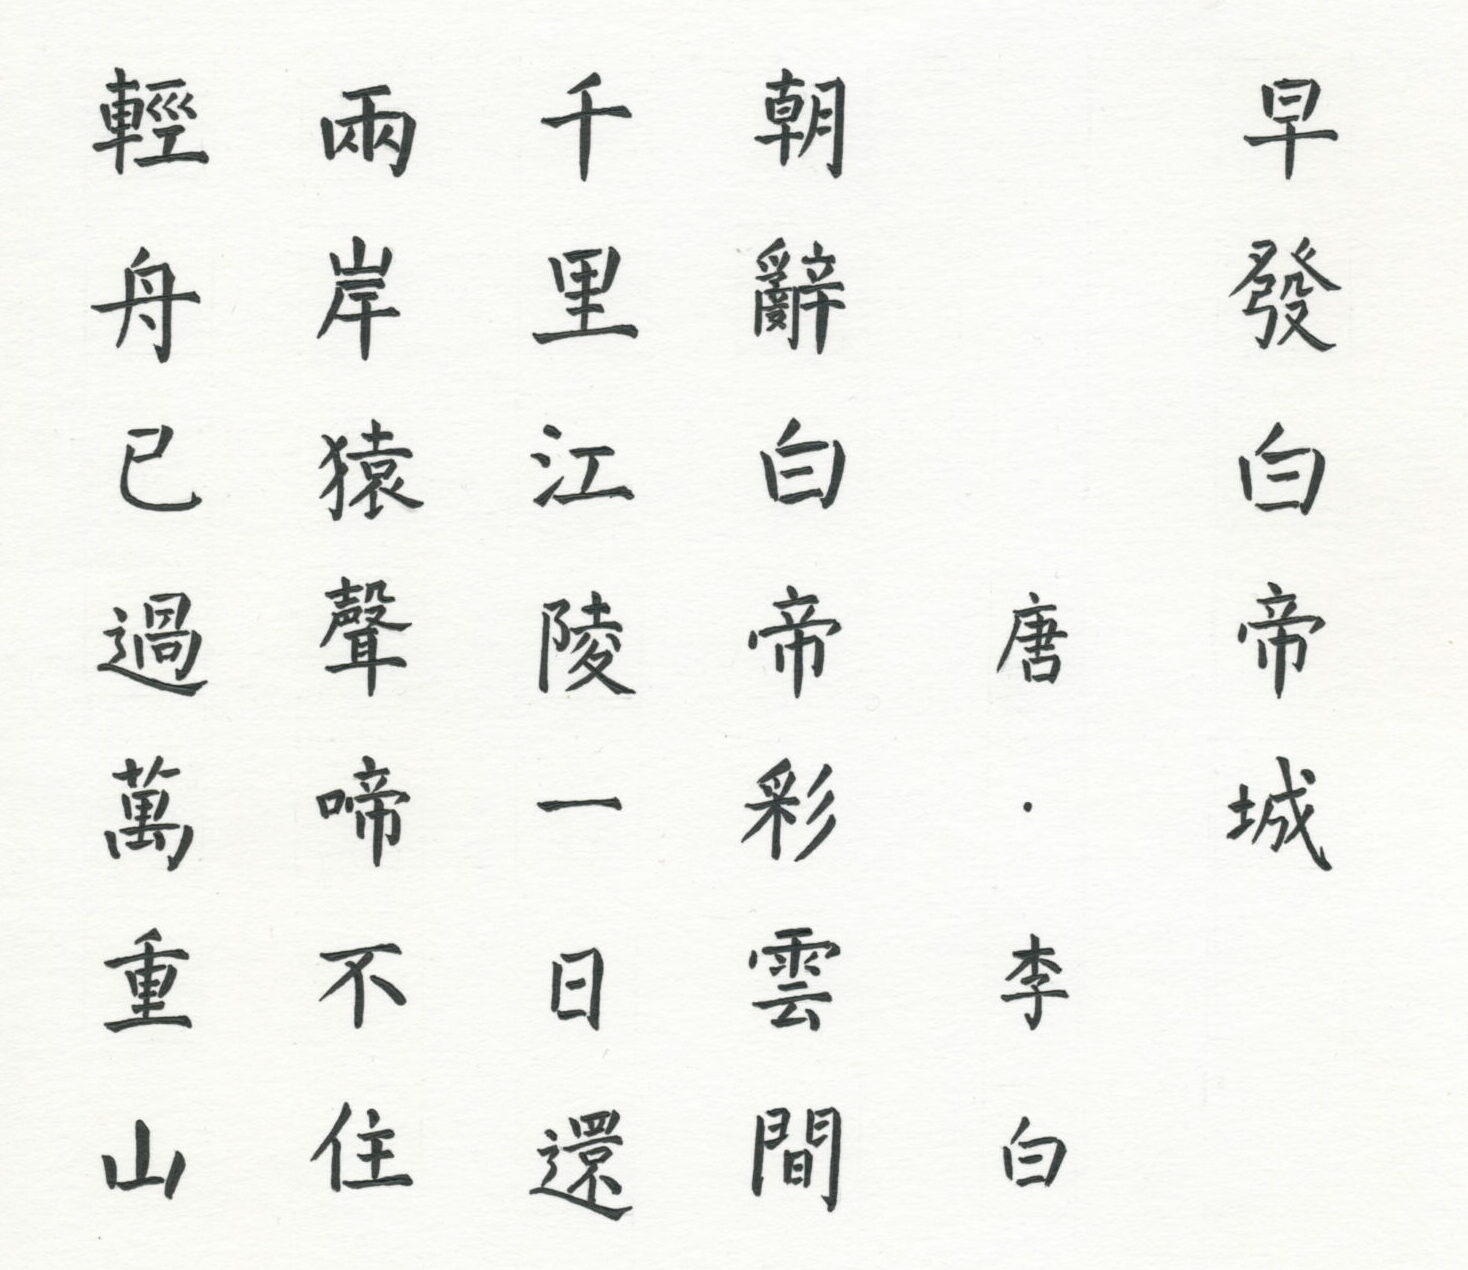 早發白帝城
唐·李白
朝辭白帝彩雲間
千里江陵一日還
兩岸猿聲啼不住
輕舟已過萬重山